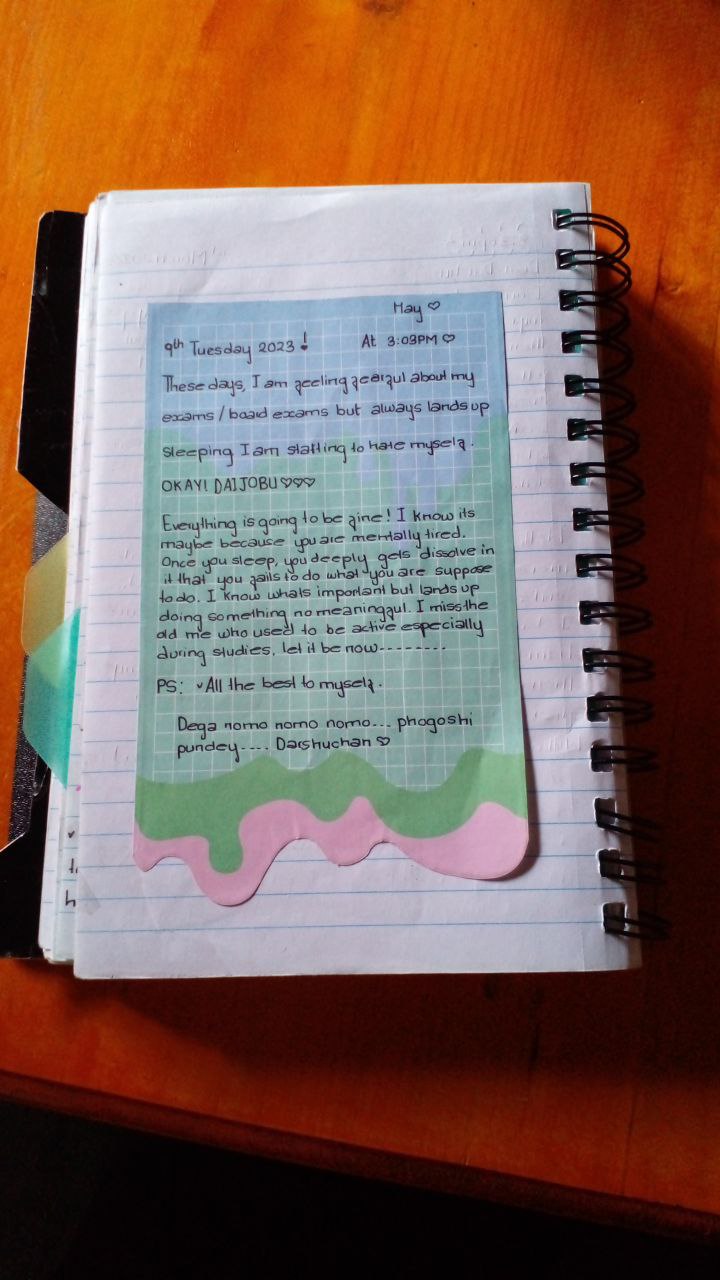 May ♡
9th Tuesday 2023 !
At 3:03PM ♡
These days, I am feeling fearful about my
exams / board exams but always lands up
sleeping I am statting to hate myself.
OKAY! DAIJOBU ♡♡♡
Everything is going to be fine! I know its
maybe because you are mentally tired.
Once you sleep, you deeply gets dissolve in
it that you fails to do what you are suppose
to do. I know whats important but lands up
doing something no meaningful. I miss the
old me who used to be active especially
during studies, let it be now---------
PS: All the best to myself.
Dega nomo nomo nomo... phogoshi
pundey.... Darshuchan ♡